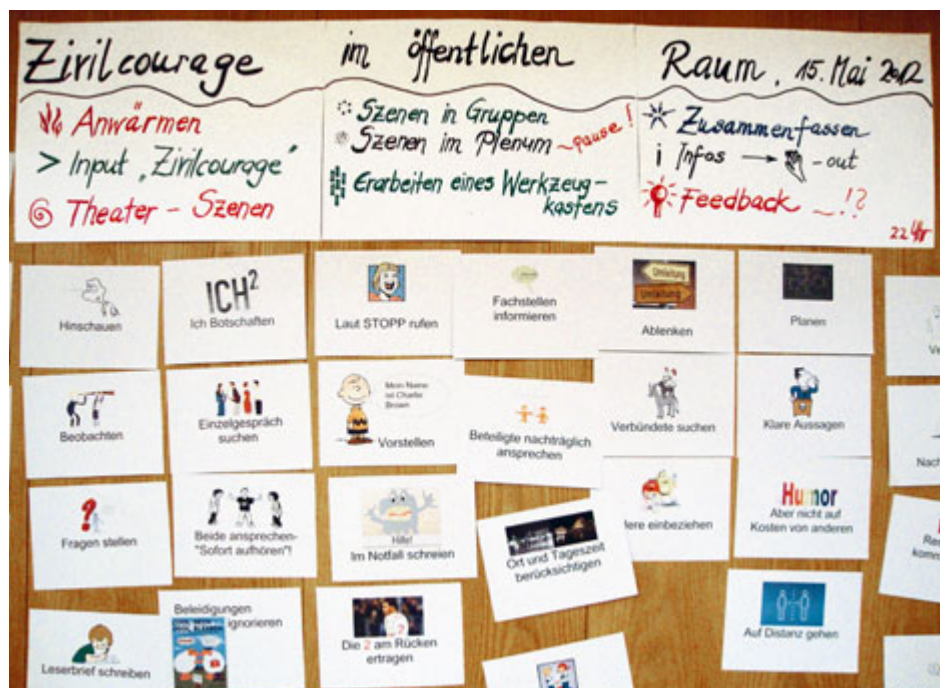 Zivilcourage im öffentlichen Raum, 15. Mai 2012
Anwärmen
> Input „Zivilcourage"
Theater - Szenen
Szenen in Gruppen
Szenen im Plenum - pause!
Erarbeiten eines Werkzeug-
kastens
Zusammenfassen
i Infos → -out
Feedback ...!?
22 Uhr
Hinschauen
ICH²
Ich Botschaften
Laut STOPP rufen
Fachstellen
informieren
Umleitung
Umleitung
Ablenken
Planen
Beobachten
Einzelgespräch
suchen
Mein Name
ist Charlie
Brown
Vorstellen
Beteiligte nachträglich
ansprechen
Verbündete suchen
Klare Aussagen
Nach
?
Fragen stellen
Beide ansprechen-
"Sofort aufhören"!
Hilfe!
Im Notfall schreien
Ort und Tageszeit
berücksichtigen
ere einbeziehen
Humor
Aber nicht auf
Kosten von anderen
Leserbrief schreiben
Beleidigungen
ignorieren
2
Die 2 am Rücken
ertragen
Auf Distanz gehen